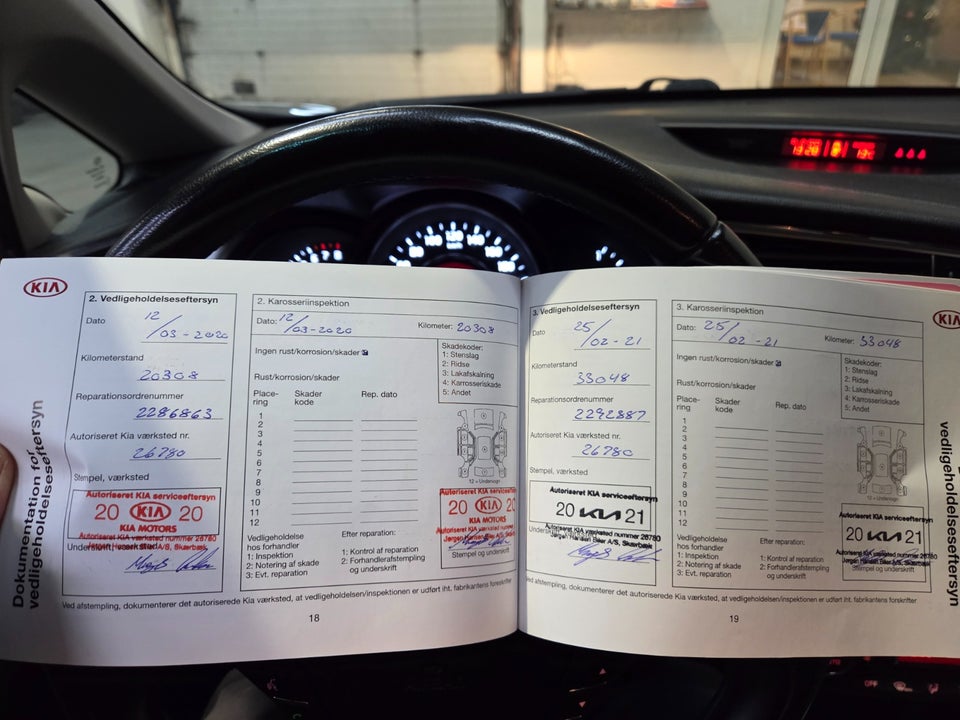 KIA
2. Vedligeholdelseseftersyn
Dato 12/03-2020
Kilometerstand
20308
Reparationsordrenummer
2286863
Autoriseret Kia værksted nr.
26780
Stempel, værksted
Autoriseret KIA serviceeftersyn
20 KIA 20
KIA MOTORS
Autoriseret KIA værksted nummer 26780
Jørgen Hansen Biler A/S, Skærbæk
2. Karosseriinspektion
Dato: 12/03-2020 Kilometer: 20308
Ingen rust/korrosion/skader
Rust/korrosion/skader
Skadekoder:
1: Stenslag
2: Ridse
3: Lakafskalning
4: Karrosseriskade
5: Andet
Place-ring Skader kode Rep. dato
1
2
3
4
5
6
7
8
9
10
11
12
12 = Undervogn
Autoriseret KIA serviceeftersyn
20 KIA 20
KIA MOTORS
Vedligeholdelse
hos forhandler
1: Inspektion
2: Notering af skade
3: Evt. reparation
Efter reparation:
1: Kontrol af reparation
2: Forhandlerafstempling
og underskrift
Stempel og underskrift
Ved afstempling, dokumenterer det autoriserede Kia værksted, at vedligeholdelsen/inspektionen er udført iht. fabrikantens forskrifter
18
Dokumentation for
vedligeholdelseseftersyn
3. Vedligeholdelseseftersyn
Dato 25/02-21
Kilometerstand
33048
Reparationsordrenummer
2292887
Autoriseret Kia værksted nr.
26780
Stempel, værksted
Autoriseret KIA serviceeftersyn
20 KIA 21
Autoriseret KIA værksted nummer 26780
Jørgen Hansen Biler A/S, Skærbæk
3. Karosseriinspektion
Dato: 25/02-21 Kilometer: 33048
Ingen rust/korrosion/skader
Rust/korrosion/skader
Skadekoder:
1: Stenslag
2: Ridse
3: Lakafskalning
4: Karrosseriskade
5: Andet
Place-ring Skader kode Rep. dato
1
2
3
4
5
6
7
8
9
10
11
12
12 = Undervogn
Autoriseret KIA serviceeftersyn
20 KIA 21
Autoriseret KIA værksted nummer 26780
Jørgen Hansen Biler A/S, Skærbæk
Vedligeholdelse
hos forhandler
1: Inspektion
2: Notering af skade
3: Evt. reparation
Efter reparation:
1: Kontrol af reparation
2: Forhandlerafstempling
og underskrift
Stempel og underskrift
Ved afstempling, dokumenterer det autoriserede Kia værksted, at vedligeholdelsen/inspektionen er udført iht. fabrikantens forskrifter
19
KIA
vedligeholdelseseftersyn